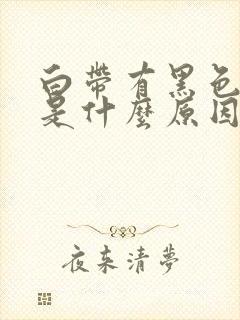 白帶有黑色
是什麼原因
夜來清夢